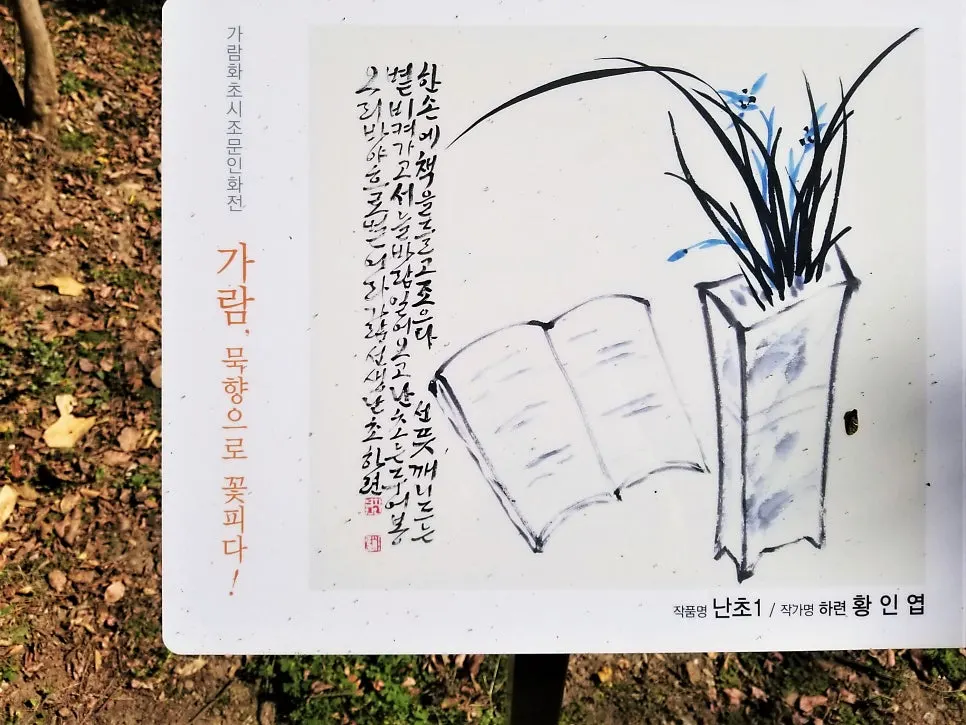 가람화초시조문인화전
가람, 묵향으로 꽃피다!
한손에책을들고조으다 선뜻깨니드는
볕비켜가고서늘바람일어오고난초는두어봉
오리바야흐로벌어라가람선생난초하련
작품명 난초1 / 작가명 하련 황인엽